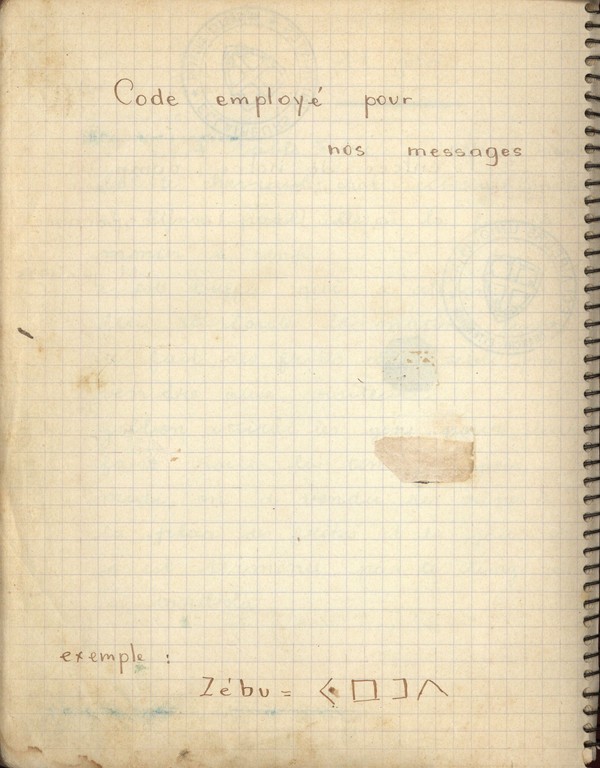 Code employé pour
nos messages
exemple :
Zébu =